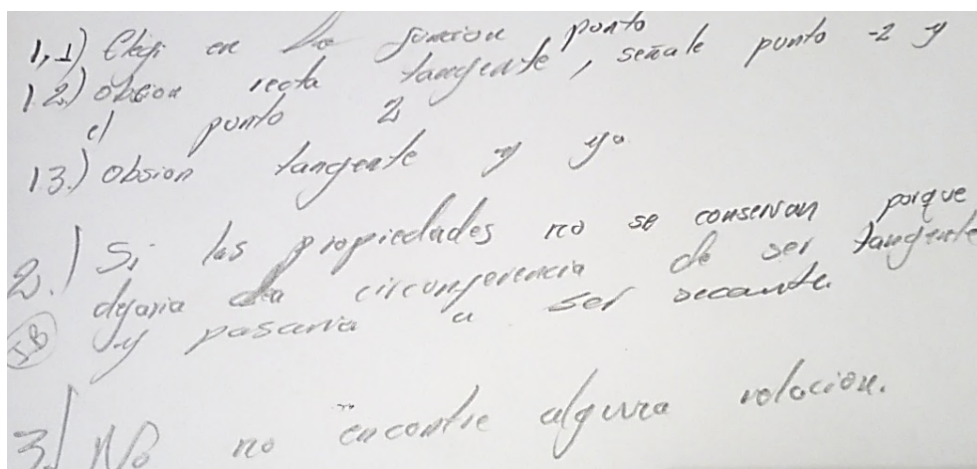 1,1) Elegi en la funcion punto
1 2.) obcion recta tangente, señale punto -2 y
el punto 2
1 3.) obsion tangente y ya
2.) Si las propiedades no se conservan porque
dejaria la circunferencia de ser tangente
y pasaria a ser secante.
IB
3.) No no encontre alguna relacion.